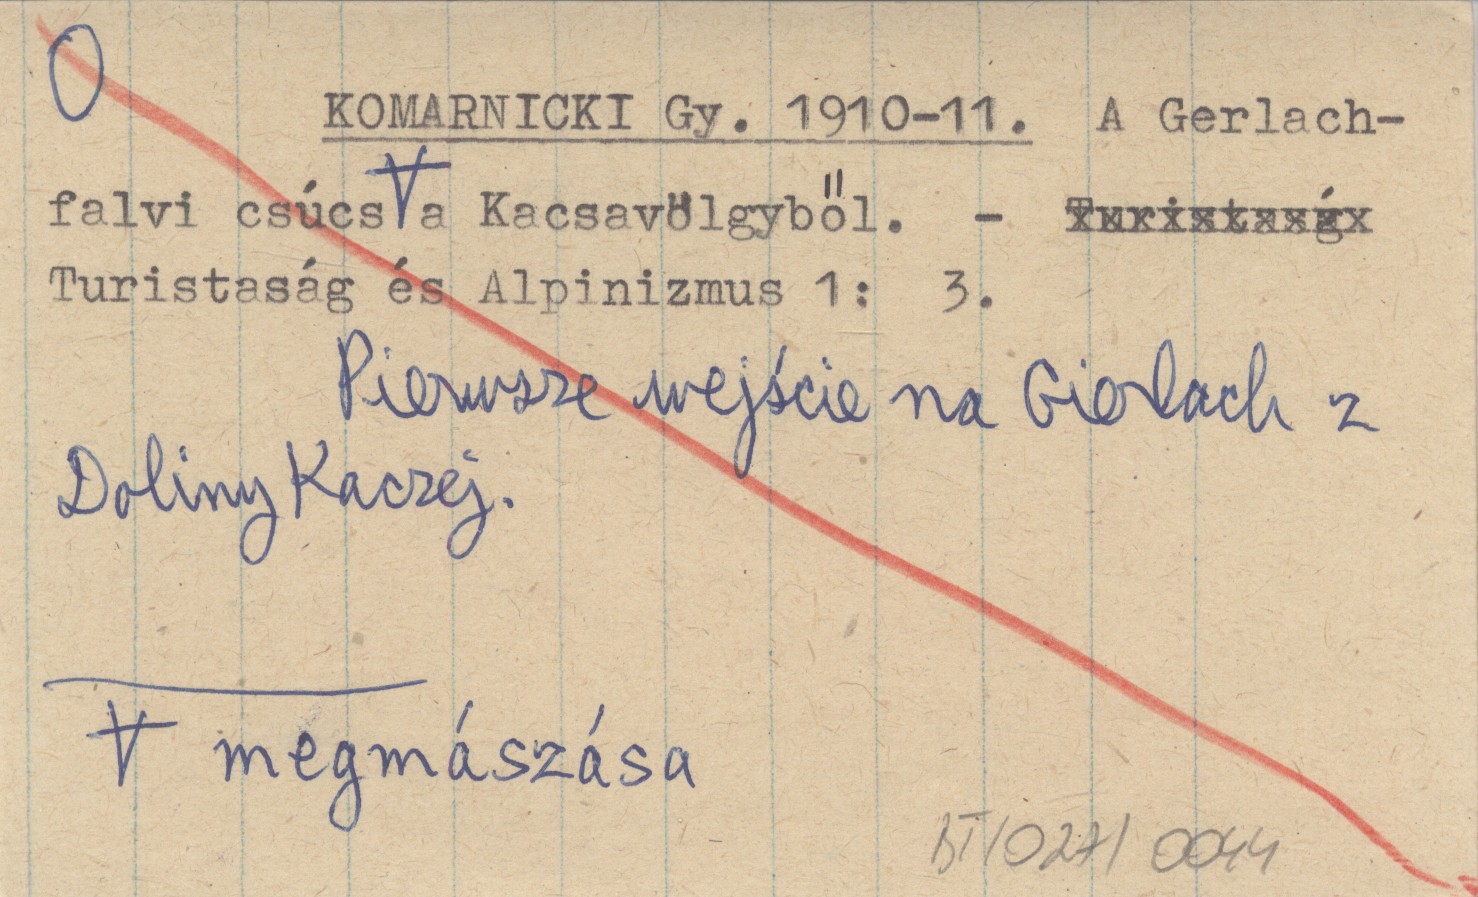 KOMARNICKI Gy. 1910-11. A Gerlach-
falvi csúcs a Kacsavölgyből. - Turistaság
Turistaság és Alpinizmus 1: 3.
Pierwsze wejście na Gierlach z
Doliny Kaczej.
megmászása
BT/027/ 0044